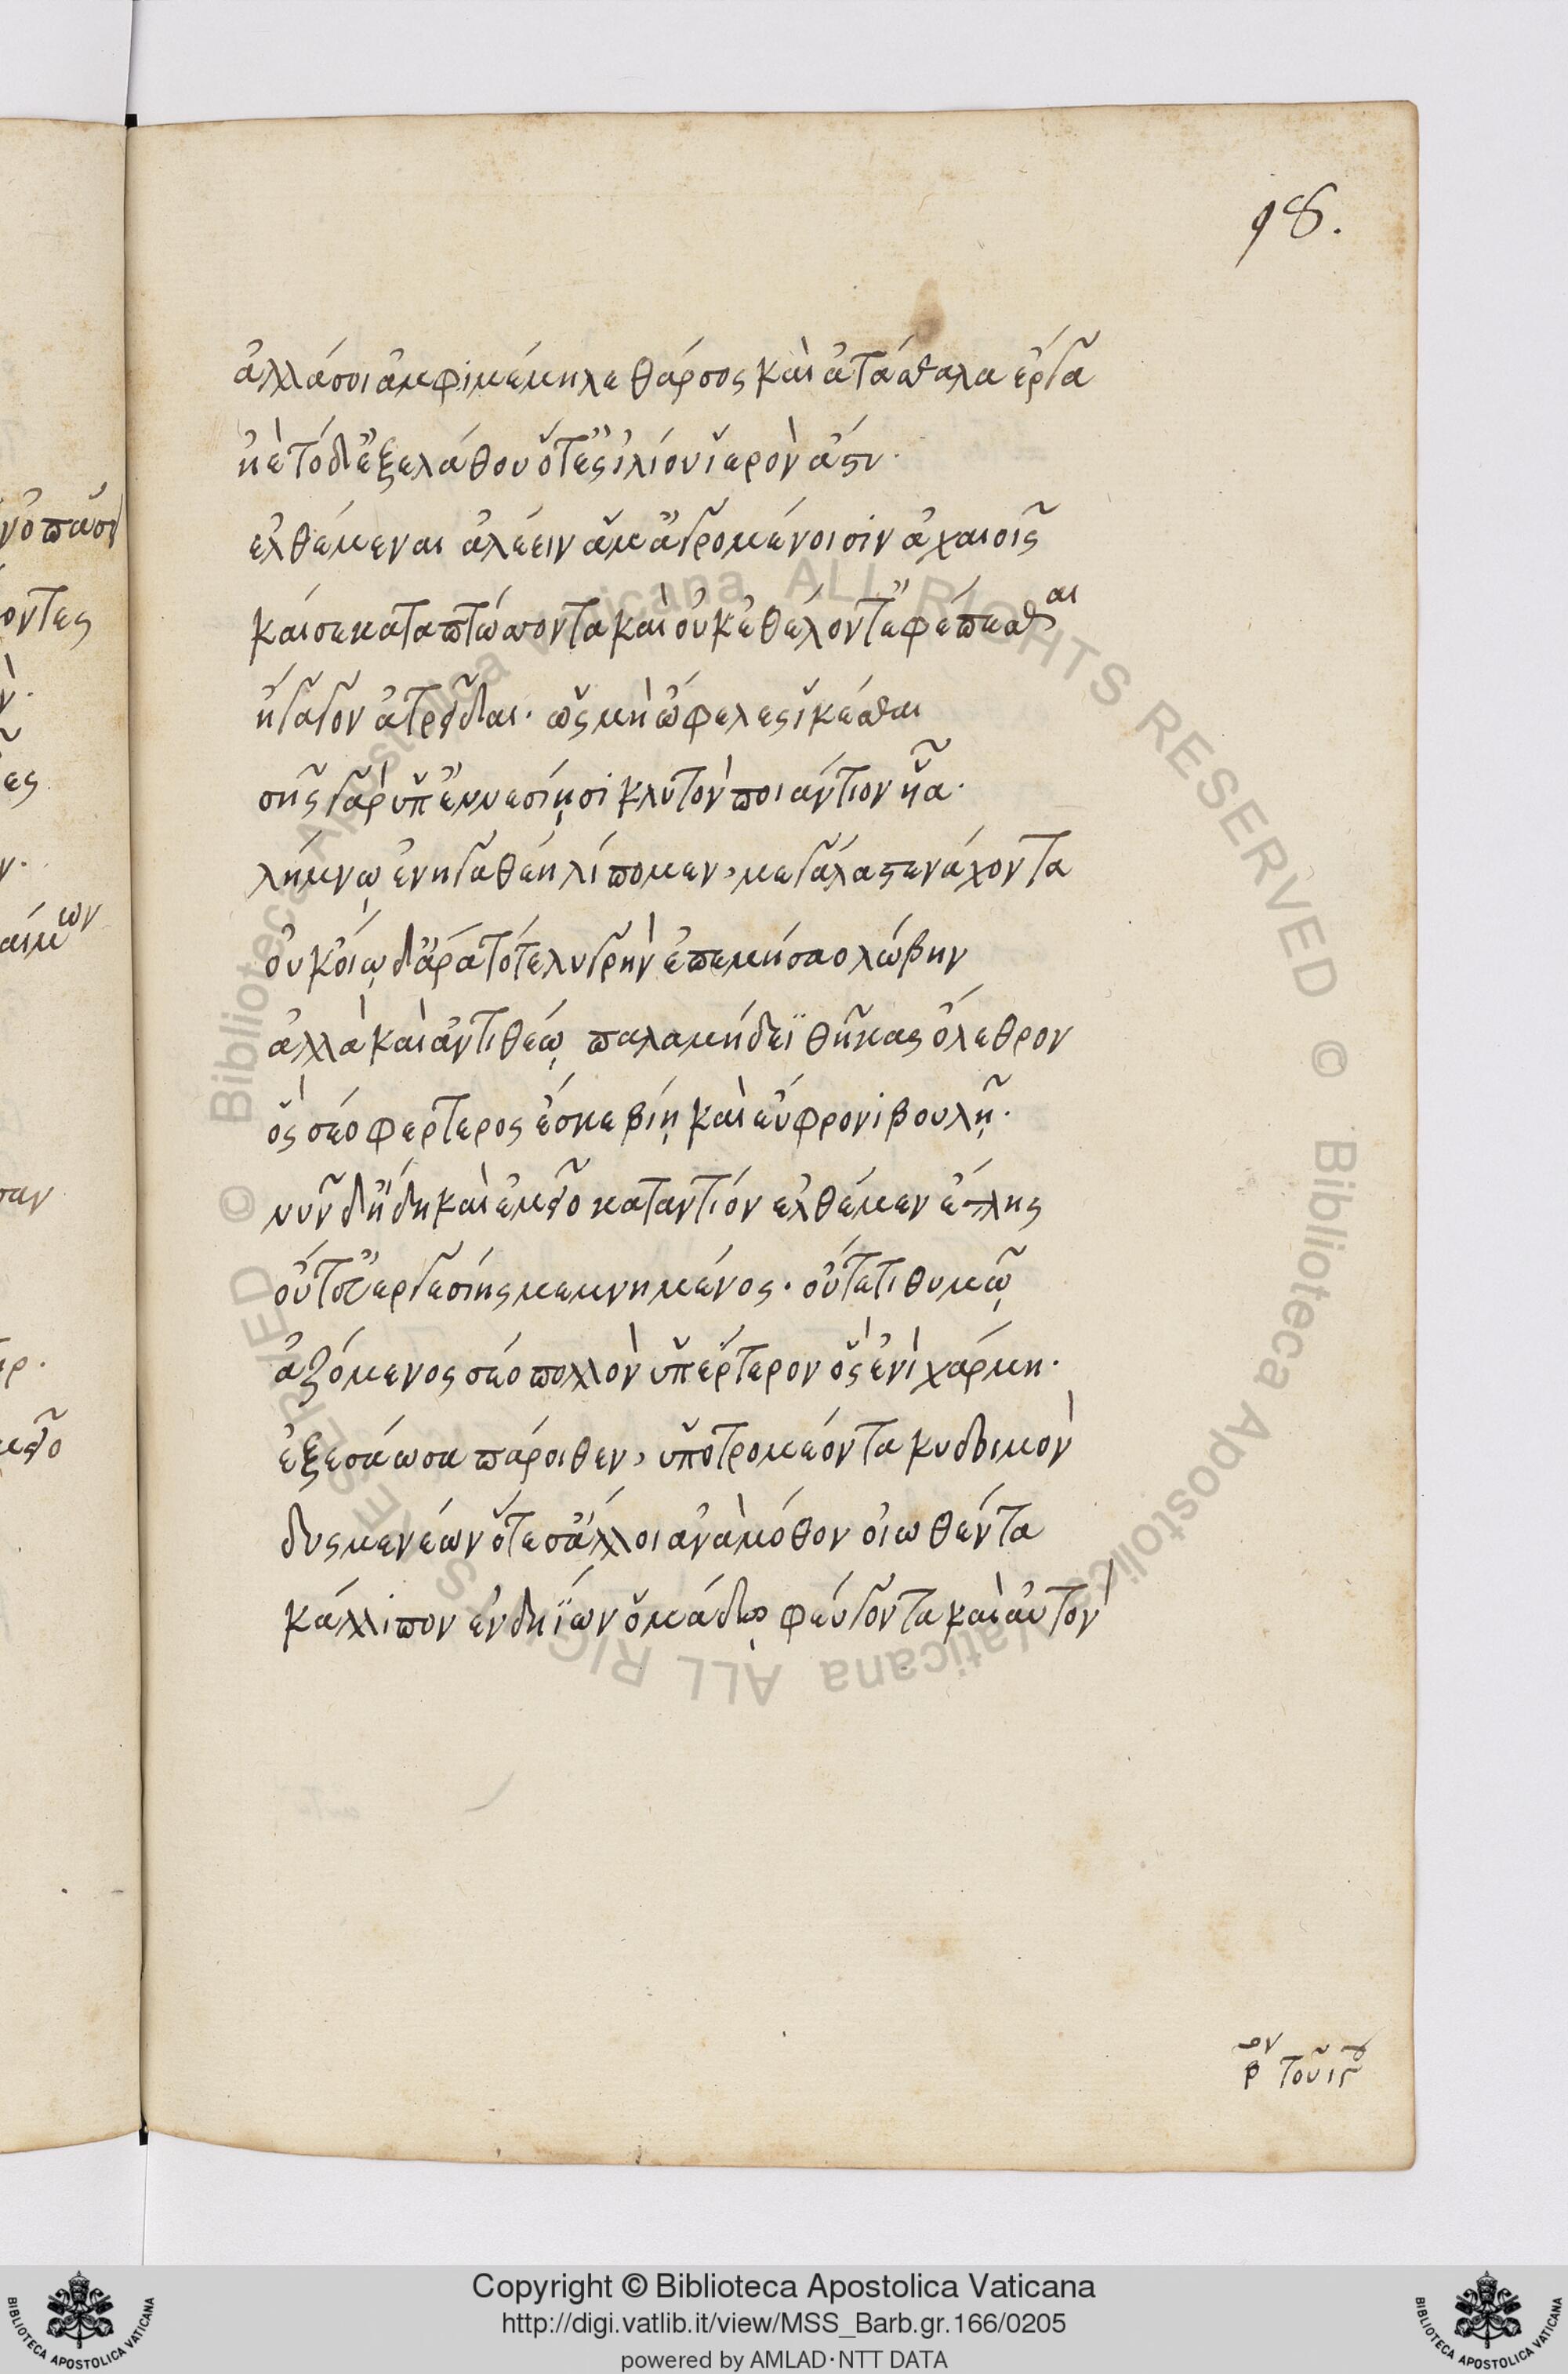 98.
ἀλλά σοι ἀμφιμέμηλε θάρσος καὶ ἀτάσθαλα ἔργα
ἠὲ τόδ' ἐξελάθου ὅτ' ἐς ἰλίου ἱερὸν ἄστυ·
ἐλθέμεναι ἀλέεινας ἅμ' ἀγρομένοισιν ἀχαιοῖς
καί σε καταπτώσσοντα καὶ οὐκ ἐθέλοντ' ἐφέπεσθαι
ἤγαγον ἀτρεῖδαι. ὡς μὴ ὤφελες ἱκέσθαι
σῆς γὰρ ὑπ' ἐννεσίῃσι κλυτὸν ποιάντιον υἷα·
λήμνῳ ἐν ἠγαθέῃ λίπομεν, μεγάλα στενάχοντα
οὐκ οἴῳ δ' ἄρα τότε λυγρὴν ἐπεμήσαο λώβην
ἀλλὰ καὶ ἀντιθέῳ παλαμήδεϊ θῆκας ὄλεθρον
ὃς σέο φέρτερος ἔσκε βίῃ καὶ ἐύφρονι βουλῇ·
νῦν δ' ἤδη καὶ ἐμεῖο καταντίον ἐλθέμεν ἔτλης
οὔτ' εὐεργεσίης μεμνημένος. οὔτε τι θυμῷ
ἁζόμενος σέο πολλὸν ὑπέρτερον ὅς σ' ἐνὶ χάρμῃ·
ἐξεσάωσα πάροιθεν, ὑποτρομέοντα κυδοιμὸν
δυσμενέων ὅτε σ' ἄλλοι ἀνὰ μόθον οἰωθέντα
κάλλιπον ἐν δηΐων ὁμάδῳ φεύγοντα καὶ αὐτὸν
β<sup>ον</sup> τοῦ ις
Copyright © Biblioteca Apostolica Vaticana
http://digi.vatlib.it/view/MSS_Barb.gr.166/0205
powered by AMLAD·NTT DATA